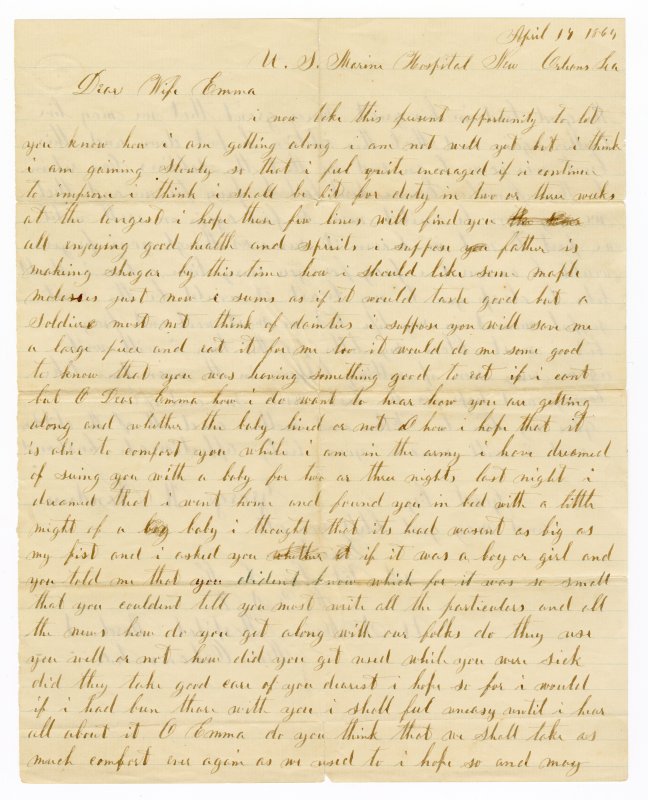 April 14 1864
U. S. Marine Hospital New Orleans La
Dear Wife Emma
i now take this present opportunity to let
you know how i am getting along i am not well yet but i think
i am gaining slowly so that i feel quite encoraged if i continue
to improve i think i shall be fit for duty in two or three weeks
at the longest i hope these few lines will find you
all enjoying good health and spirits i suppose you father is
making shugar by this time how i should like some maple
molasses just now i seems as if it would taste good but a
soldiere most not think of dainties i suppose you will save me
a large piece and eat it for me too it would do me some good
to know that you was having something good to eat if i cant
but O Dear Emma how i do want to hear how you are getting
along and whether the baby lived or not O how i hope that it
is alive to comfort you while i am in the army i have dreamed
of seing you with a baby for two or three nights last night i
dreamed that i went home and found you in bed with a little
might of a baby i thought that its head wasent as big as
my fist and i asked you whether it if it was a boy or girl and
you told me that you dident know which for it was so small
that you couldent tell you most write all the particulers and all
the news how do you get along with our folks do they use
you well or not how did you get used while you were sick
did they take good care of you dearest i hope so for i would
if i had bun thare with you i shall ful uneasy until i hear
all about it O Emma do you think that we shall take as
much comfort ever again as we used to i hope so and may